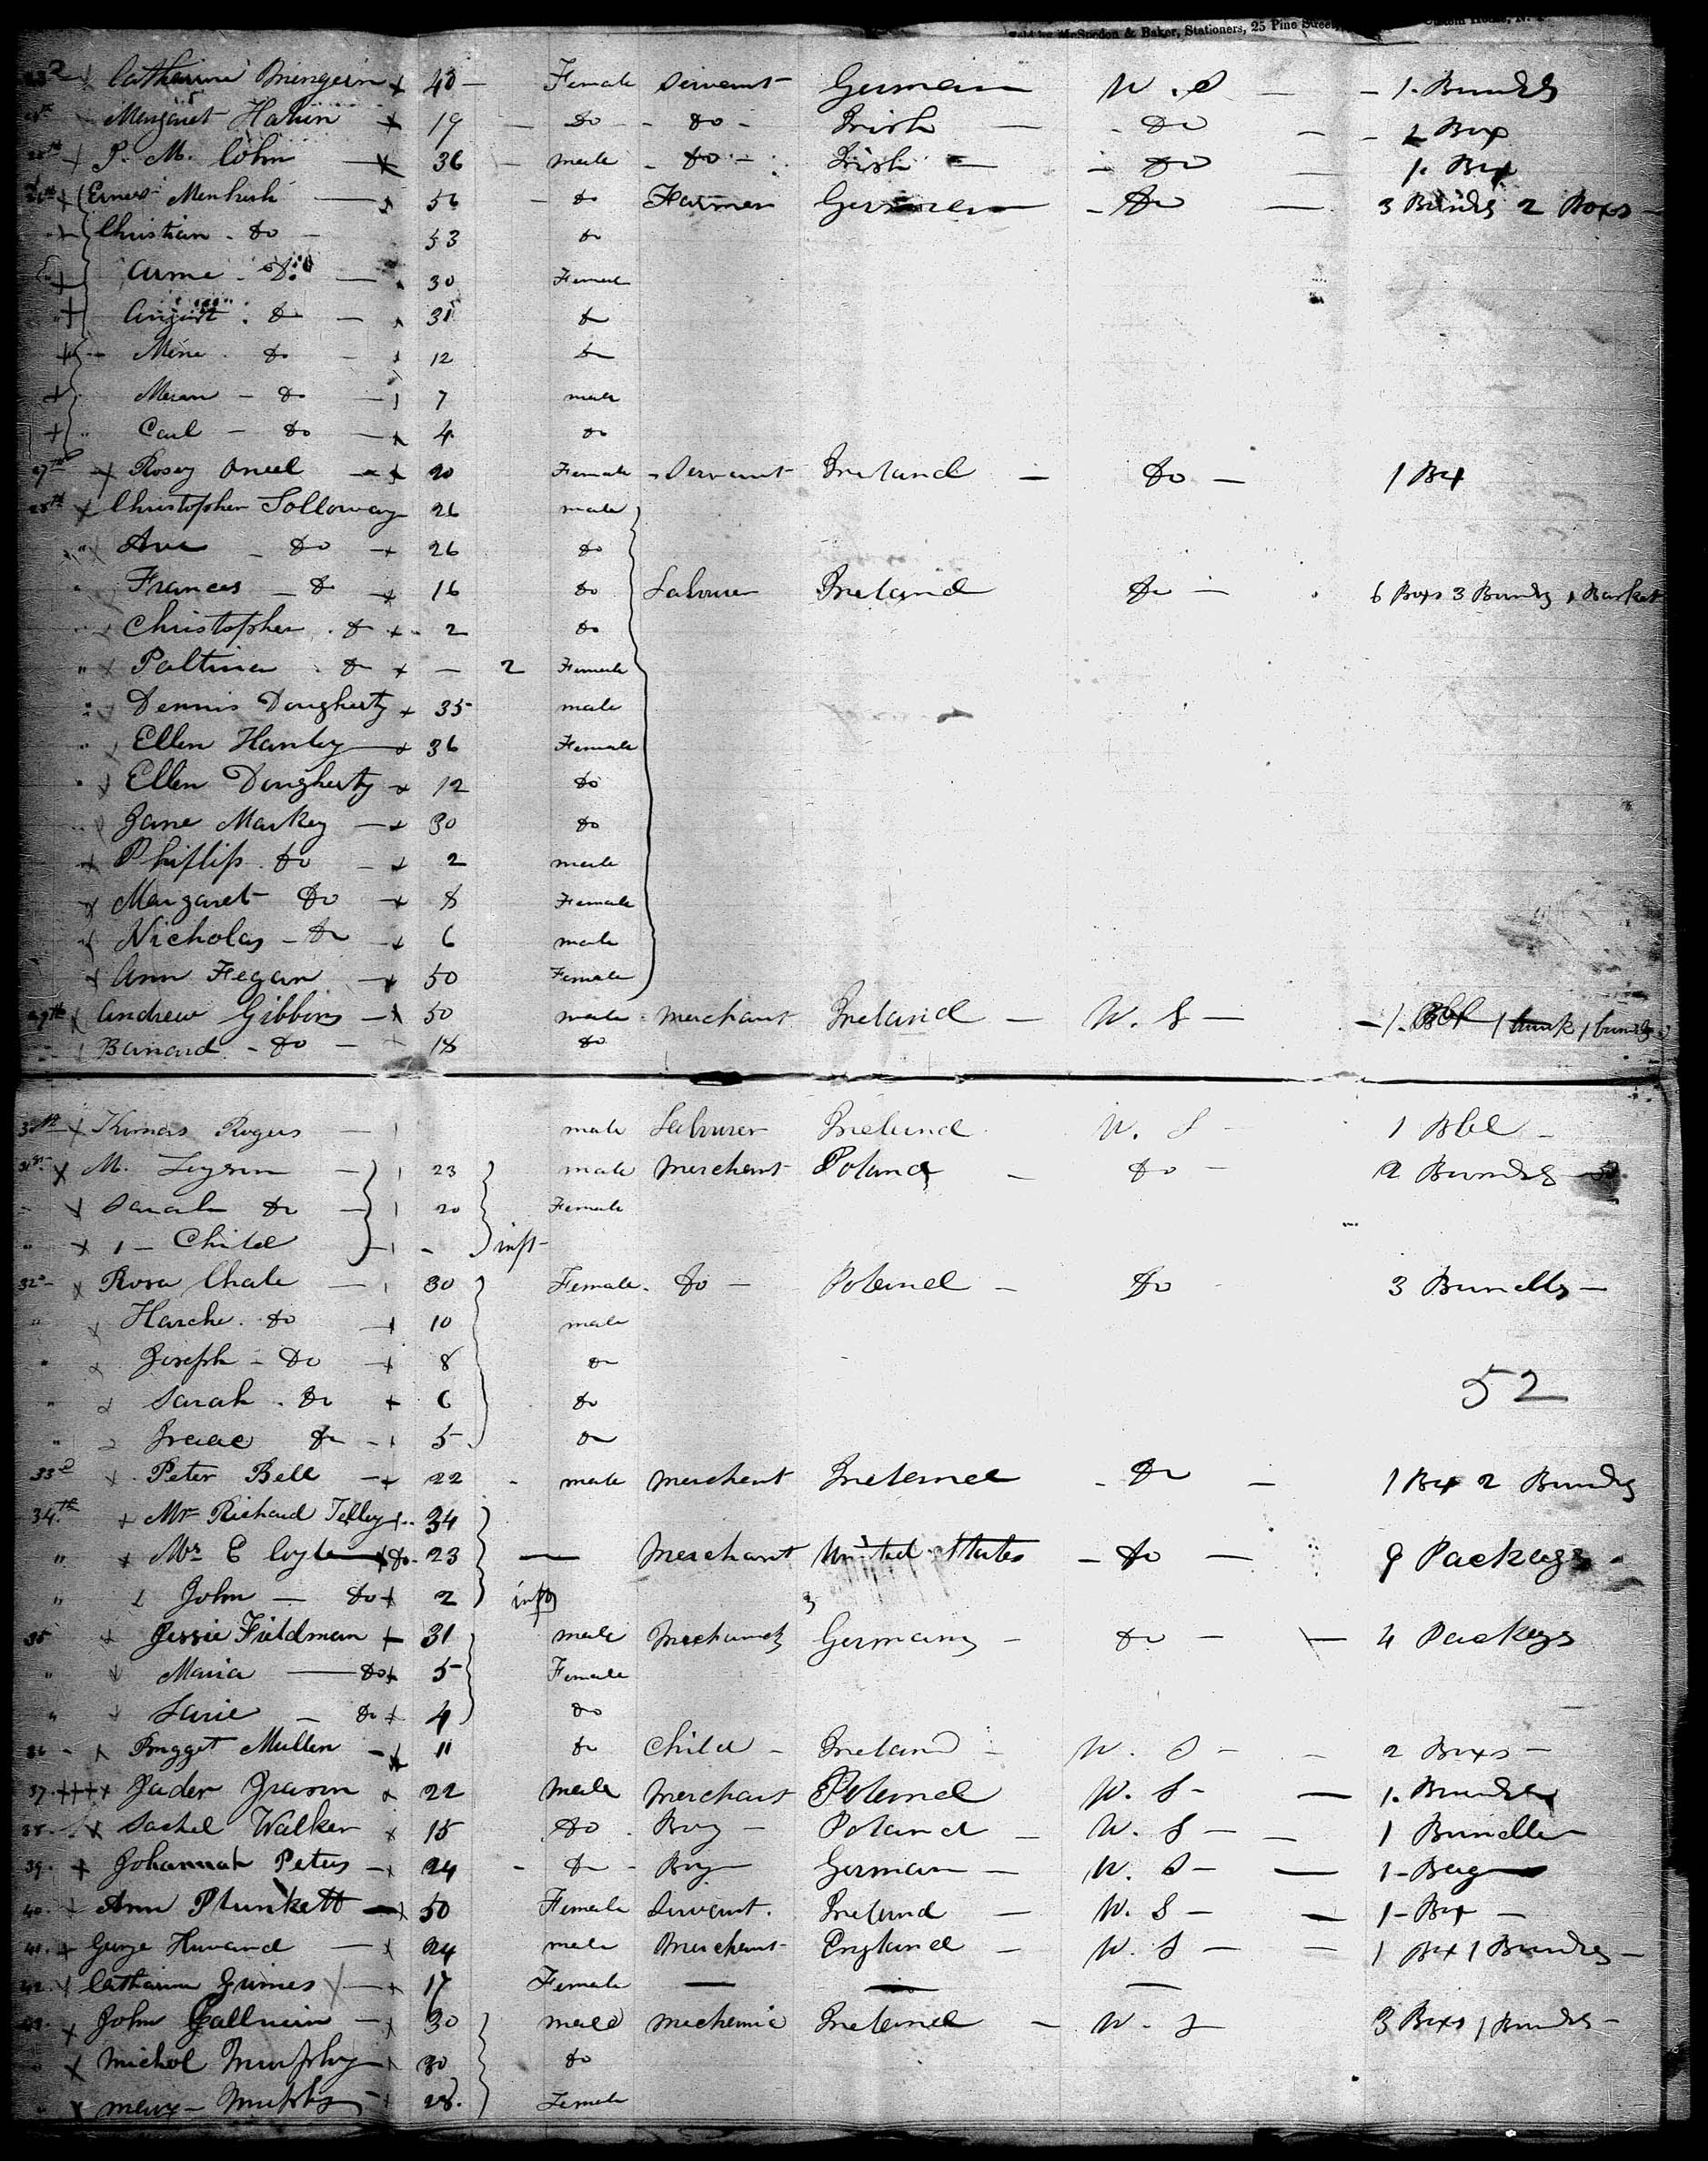 Sold by McSpedon & Baker, Stationers, 25 Pine Street, Custom House, N. Y.
Catharine 40 Female Servant German U. S 1. Bundls
24th Margaret 19 Do Do Irish Do 2 Box
25th P. M. Cohn 36 male Do Irish Do 1. Box
26th 56 do Farmer German Do 3 Bundls 2 Boxs
Christian Do 53 do
Do 30 Female
August do 31 do
Mine do 12 do
do 7 male
Carl do 4 do
27th Rosey Oneel 20 Female Servant Ireland Do 1 Bx
28th Christopher Solloway 26 male
" Do 26 do
" Frances do 16 do Labourer Ireland Do 6 Boxs 3 Bundls 1 Basket
" Christopher do 2 do
" do 2 Female
" Dennis Dougherty 35 male
" Ellen Hanley 36 Female
" Ellen Dougherty 12 do
" Jane Markey 30 do
Phillip do 2 male
Margaret Do 8 Female
Nicholas do 6 male
Ann Fegan 50 Female
29th Andrew Gibbins 50 male merchant Ireland U. S 1 1 trunk 1 bundls
Barnard do 18 do
30th Thomas Rogers male Labourer Ireland U. S 1 Bbl
31st M. 23 male merchant Poland do 2 Bundls
" Sarah do 20 Female
" 1 Child inft
32d Rosa Chale 30 Female do Poland Do 3 Bundls
" Harche do 10 male
" Joseph do 8 do
52
" Sarah do 6 do
" Isaac do 5 do
33d Peter Bell 22 male merchant Ireland Do 1 Bx 2 Bundls
34th Mr Richard Telley 34
" Mrs E do 23 Merchant United States do 9 Packegs
" John do 2 inft
35 Jessie Fieldman 31 male Mechanick Germany do 4 Packegs
" Maria do 5 Female
" do 4 do
36 Brigget Mullen 11 do Child Ireland U. S 2 Boxs
37. 22 male Merchant Poland U. S 1. Bundle
38. Walker 15 do Boy Poland U. S 1 Bundle
39. Johannah Peters 24 do Boy German U. S 1 Bag
40. Ann Plunkett 50 Female Servant. Ireland U. S 1 Box
41. George Howard 24 male Merchant England U. S 1 Bx 1 Bundls
42. Catharine Grimes 17 Female
43. John 30 male mechanic Ireland U. S 3 Boxs 1 Bundls
Michal Murphy 30 do
Mary Murphy 28. Female